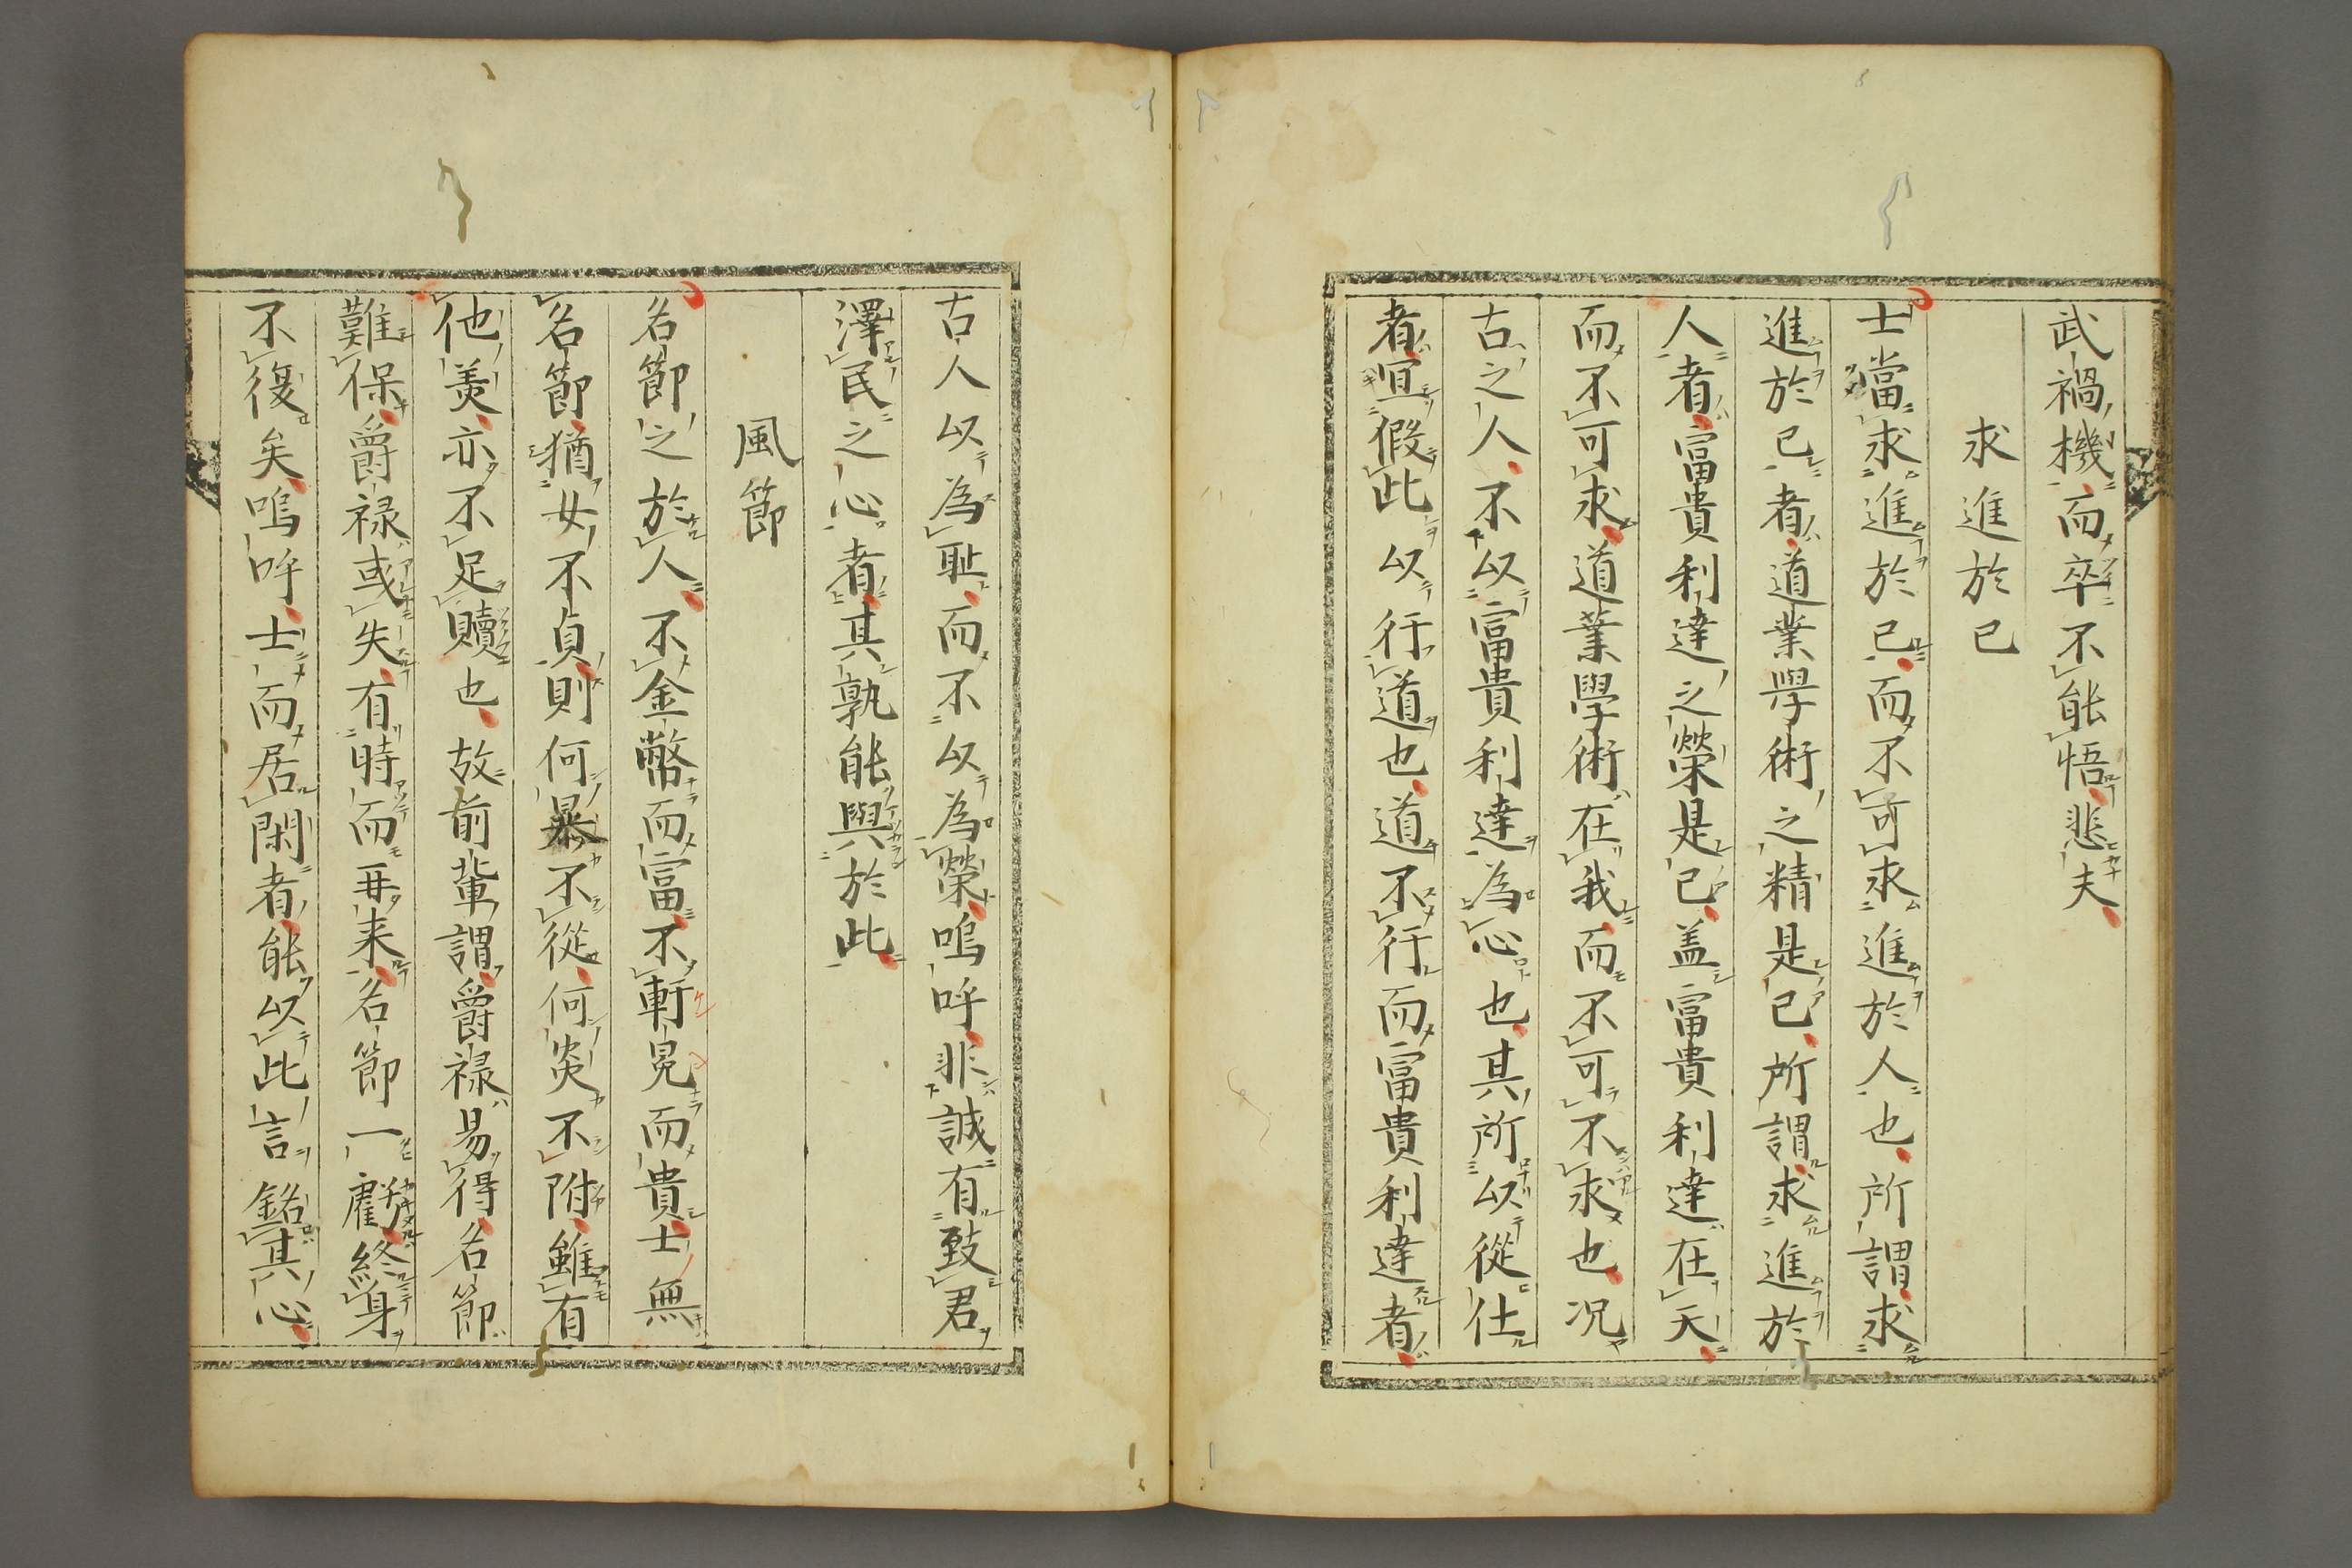 武禍機而卒不能悟悲夫
求進於己
士當求進於己而不可求進於人也所謂求
進於己者道業學術之精是已所謂求進於
人者富貴利達之榮是已盖富貴利達在天
而不可求道業學術在我而不可不求也况
古之人不以富貴利達為心也其所以從仕
者宜假此以行道也道不行而富貴利達者
古人以為耻而不以為榮嗚呼非誠有致君
澤民之心者其孰能與於此
風節
名節之於人不金幣而富不軒冕而貴士無
名節猶女不貞則何暴不從何炎不附雖有
他羙亦不足贖也故前輩謂爵禄易得名節
難保爵禄或失有時而再来名節一虧終身
不復矣嗚呼士而居閑者能以此言銘其心